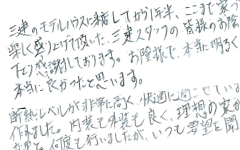 三建のモデルハウスに来店してから1年半、ここまで家づ
楽しく盛り上げて頂いた、三建スタッフの皆様のお陰
です 感謝しております。お陰様で、本当に明るく
本当に良かったと思います。
断熱レベルが非常に高く、快適に過ごせている
作れました。内装も外装も良く、理想の家が
何度も行いましたが、いつも要望を聞